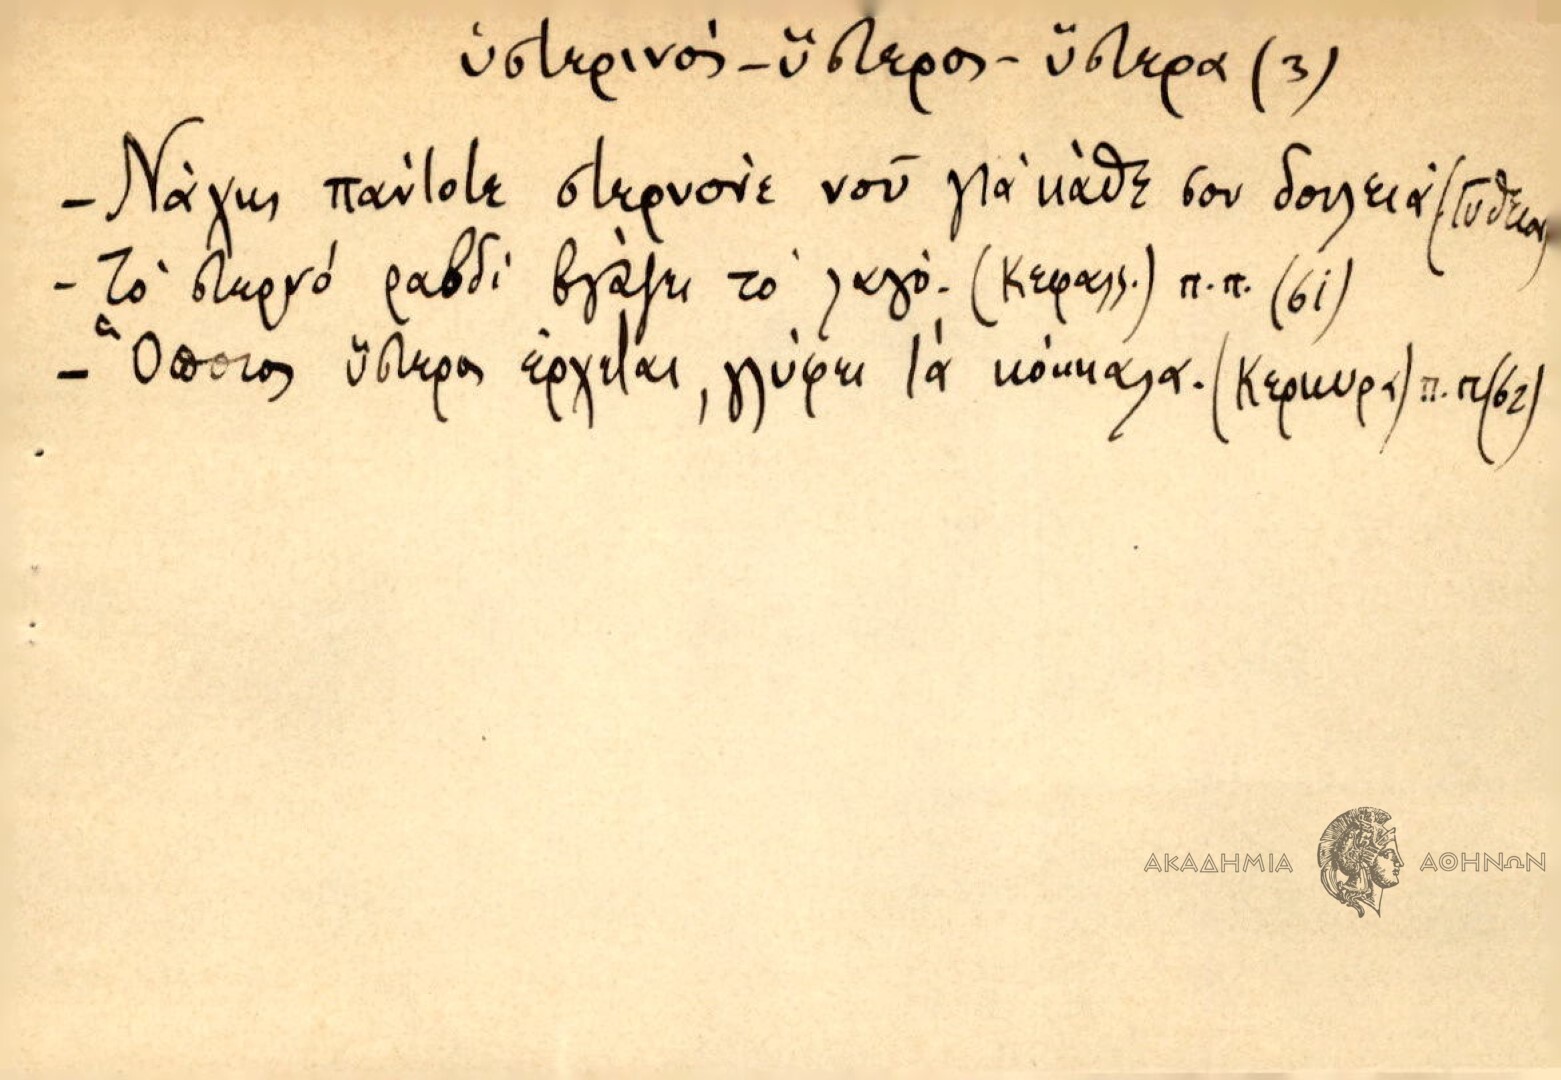 ὑστερινός - ὕστερος - ὕστερα (3)
- Νάχης πάντοτε στερνόνε νοῦ γιά κάθε σου δουλειά (Γύθειον)
- Τό στερνό ραβδί βγάζει τό λαγό. (Κεφαλλ.) π.π. (61)
- Ὅποιος ὕστερος ἔρχεται, γλύφει τά κόκκαλα. (Κέρκυρα) π.π (62)
ΑΚΑΔΗΜΙΑ ΑΘΗΝΩΝ